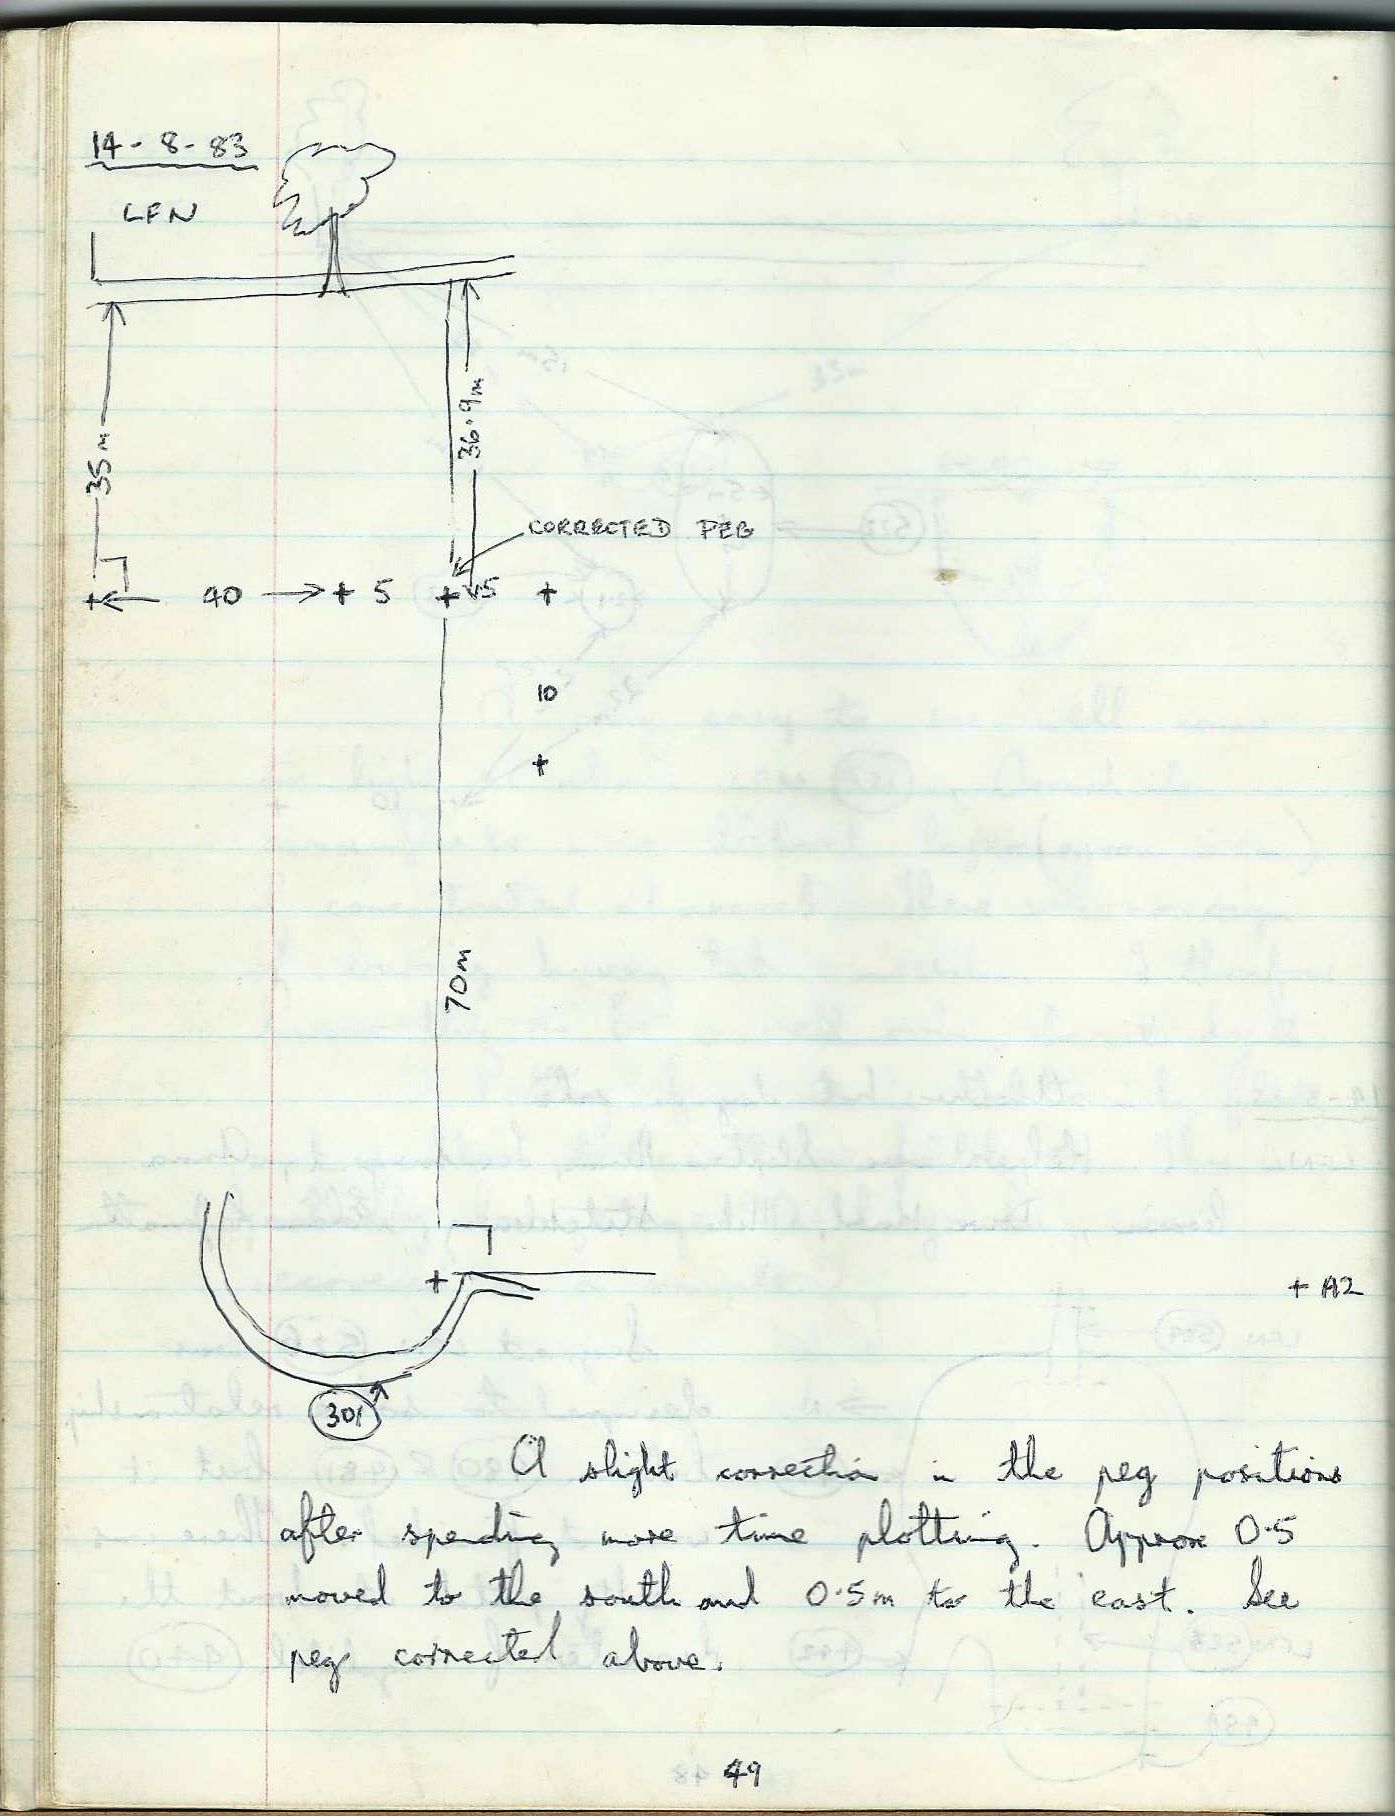 14-8-83
LFN
35m
36.9m
CORRECTED PEG
+ ← 40 → + 5 + 5 +
10
+
70m
+
+ A2
301
A slight correction in the peg positions
after spending more time plotting. Approx 0.5
moved to the south and 0.5m to the east. See
peg corrected above.
49